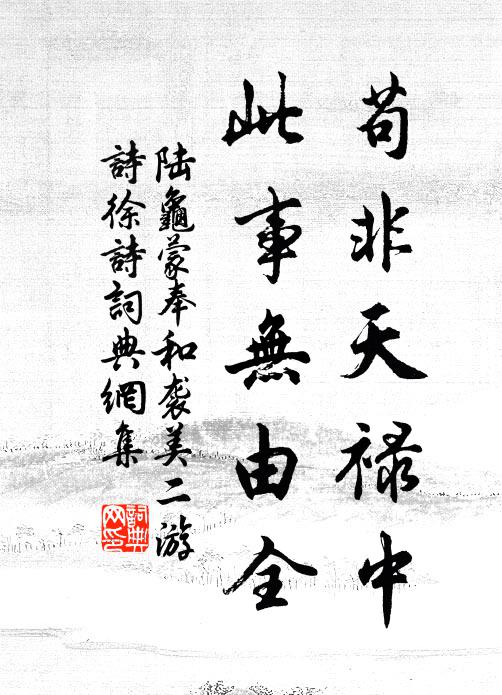 苟非天禄中
此事無由全
陆龜蒙奉和袭美二游
詩徐詩詞典網集
詞典网印